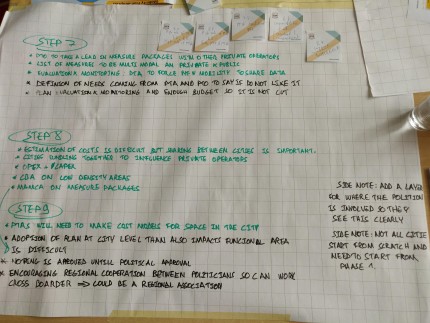 STEP 7
• PTO TO TAKE A LEAD IN MEASURE PACKAGES WITH OTHER PRIVATE OPERATORS
• LIST OF MEASURES TO BE MULTI MODAL AN PRIVATE & PUBLIC
• EVALUATION & MONITORING: PTA TO FORCE MOBILITY TO SHARE DATA
• DEFINITION OF NEEDS COMING FROM PTA AND PTO TO SAY IS DO NOT LIKE IT
• PLAN EVALUATION & MONITORING AND ENOUGH BUDGET SO IT IS NOT CUT
STEP 8
• ESTIMATION OF COSTS IS DIFFICULT BUT SHARING BETWEEN CITIES IS IMPORTANT.
• CITIES WORKING TOGETHER TO INFLUENCE PRIVATE OPERATORS
• OPEX & CAPEX
• CBA ON LOW DENSITY AREAS
• MAMCA ON MEASURE PACKAGES
STEP 9
• PTAS WILL NEED TO MAKE COST MODELS FOR SPACE IN THE CITY
• ADOPTION OF PLAN AT CITY LEVEL THAN ALSO IMPACTS FUNCIONAL AREA
IS DIFFICULT
* NOTHING IS APROVED UNTIL POLITICAL APPROVAL
* ENCOURAGING REGIONAL COOPERATION BETWEEN POLITICIANS SO CAN WORK
CROSS BOARDER => COULD BE A REGIONAL ASSOCIATION
SIDE NOTE: ADD A LAYER
FOR WHERE THE POLITION
IS INVOLVED SO THEY
SEE THIS CLEARLY
SIDE NOTE: NOT ALL CITIE
START FROM SCRATCH AND
NEED TO START FROM
PHASE 1.